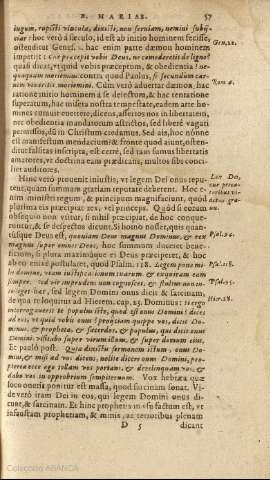 B. MARIAE. 57
iugum, rupisti vincula, dixisti, non seruiam, nemini subij-
ciar: hoc verò à sæculo, id est ab initio hominem fecisse,
ostenditur Genes. hac enim parte dæmon hominem
impetijt: Cur præcepit vobis Deus, ne comederetis de ligno?
quasi dicat, vt quid vobis præceptum, & obedientia? ne-
quaquam moriemini: contra quod Paulus, si secundum car-
nem vixeritis moriemini. Cum verò aduertat dæmon hac
ratione mitti hominem à se deiectum, & hac tentatione
superatum, hac misera nostra tempestate, eadem arte ho-
mines conatur euertere, dicens, assertos nos in libertatem,
nec obedientia mandatorum astrictos, sed liberè vagari
permissos, dum in Christum credamus. Sed ais, hoc nonne
est manifestum mendacium? & fronte quod aiunt, osten-
ditur falsitas inscripta, est certè, sed tum sumus libertatis
amatores, vt doctrina eam prædicans, multos sibi conci-
liet auditores.
Hinc verò prouenit iniustis, vt legem Dei onus repu-
tent, quam summam gratiam reputare deberent. Hoc e-
nim ministri regum, & principum magnificiunt, quod
plurima eis præcipiat rex, vel princeps. Quòd si eorum
obsequio non vtitur, si nihil præcipiat, de hoc conque-
runtur, & se despectos dicunt. Si homo nosset, quis quan-
tusque Deus est, quoniam Deus magnus Dominus, & rex
magnus super omnes Deos, hoc summum duceret bene-
ficium, si plura maximáque ei Deus præciperet, & hoc
ab eo enixè postularet, quod Psalm. 118. Legem pone mi-
hi domine, viam iustificationum tuarum, & exquiram eam
semper.
leget her, sed legem Domini onus dicit & sarcinam,
de qua te loquitur ad Hierem. cap. 23. Dominus: si ergo
interrogauerit te populus iste, quod est onus Domini? dices
ad eos, vt quid vobis onus? proijciam quippe vos, dicit Do-
minus, & propheta, & sacerdos, & populus, qui dicit onus
Domini: visitabo super virum illum, & super domum eius.
Et paulò post. Quia dixistis sermonem istum, onus Do-
mini, & misi ad vos dicens, nolite dicere onus Domini, pro-
pterea ecce ego tollam vos portans, & derelinquam vos, &
dabo vos in opprobrium sempiternum. Vox hebræa quæ
loco oneris ponitur est massa, quod sarcinam sonat. Vi-
de verò iram Dei in eos, qui legem Domini onus di-
cunt, & sarcinam. Et hinc prophetis in vsu factum est, vt
infaustam prophetiam, & minis, ac terroribus plenam
D 5 dicant
Gen. 22.
Rom. 8.
Lex Dei,
Psal. 94.
Psal. 118.
Hier. 28.
Colección ABANCA